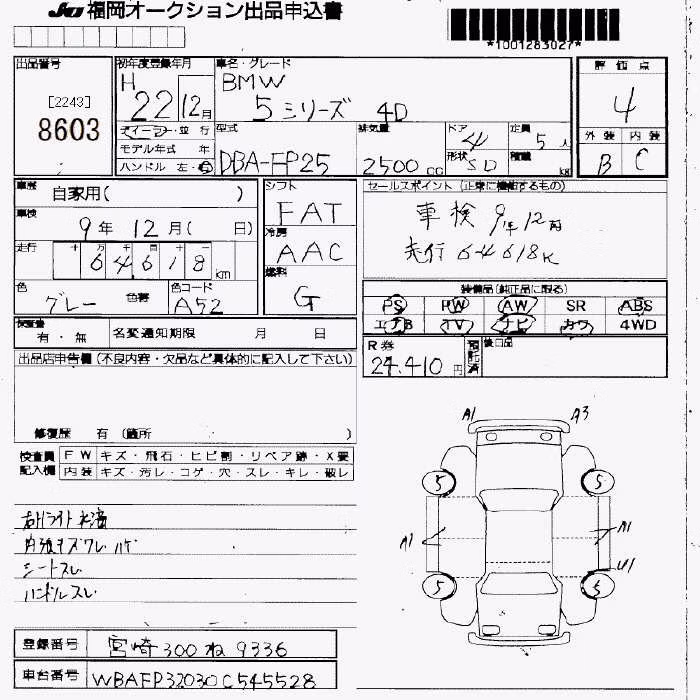 JU 福岡オークション出品申込書
*1001283027*
出品番号
[2243]
8603
初年度登録年月
H 22 12月
ディーラー・並行
モデル年式 年
ハンドル 左・右
車名・グレード
BMW
5シリーズ 4D
型式
DBA-FP25
排気量
2500 cc
ドア 4
形状 SD
定員 5 人
積載 kg
評価点
4
外装 内装
B C
車歴
自家用( )
車検
9年 12月( 日)
走行
十万千百十
64618 km
色
グレー 色替
色コード
A52
シフト
FAT
冷房
AAC
燃料
G
セールスポイント (正常に機能するもの)
車検 9年12月
走行 64618K
装備品(純正品に限る)
PS PW AW SR ABS
エアB TV ナビ カワ 4WD
R券
24,410 円
預託済
後日品
検査書
有・無
名変通知期限 月 日
出品店申告欄 (不良内容・欠品など具体的に記入して下さい)
修復歴 有 (箇所 )
検査員記入欄
FW キズ・飛石・ヒビ割・リペア跡・X要
内装 キズ・汚レ・コゲ・穴・スレ・キレ・破レ
シートスレ
ハンドルスレ
A1 A3
5 5
A1 A1
U1
5 5
登録番号
宮崎 300 ね 9336
車台番号
WBAFP32030C545528